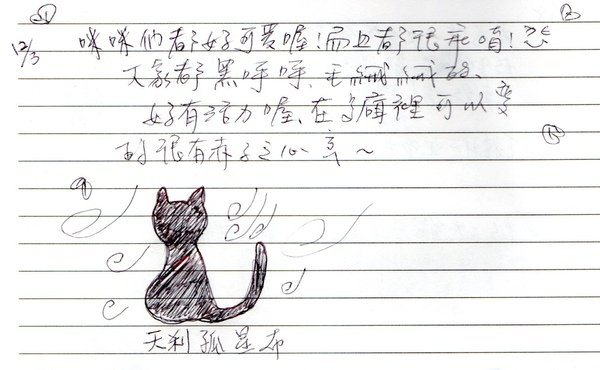 12/3 咪咪們都好可愛喔!而且都很乖唷!怎
大家都黑呼呼、毛絨絨的、
好有活力喔、在了癮裡可以變
的很有赤子之心享~
天剎孤星布